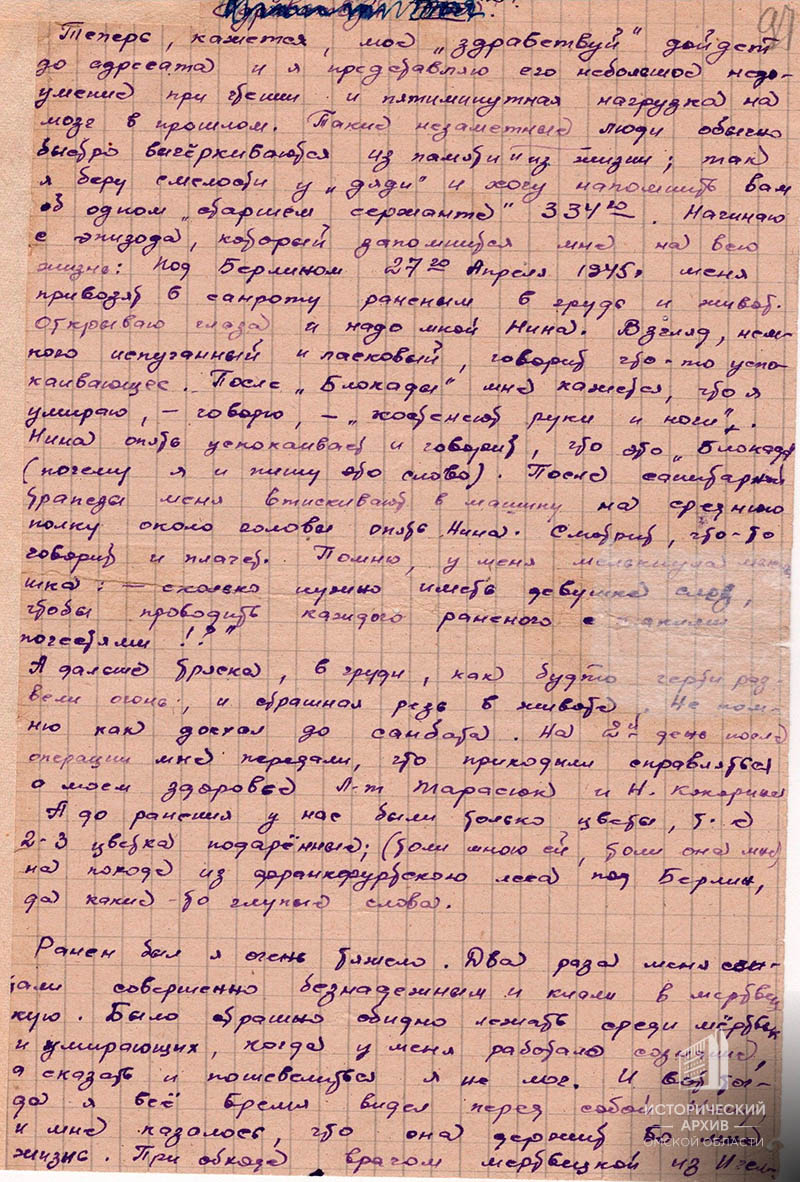 97
Теперь, кажется, мое „здравствуй" дойдет
до адресата и я представляю его небольшое недо-
умение при чтении и пятиминутная нагрузка на
мозг в прошлом. Такие незаметные люди обычно
быстро вычёркиваются из памяти и из жизни; так
я беру смелости у „дяди" и хочу напомнить вам
об одном „старшем сержанте" 334го. Начинаю
с эпизода, который запомнится мне на всю
жизнь: Под Берлином 27го Апреля 1945г меня
привозят в санроту раненым в грудь и живот.
Открываю глаза и надо мной Нина. Взгляд, нем-
ного испуганный и ласковый, говорит что-то успо-
каивающее. После „Блокады" мне кажется, что я
умираю, – говорю, – „костенеют руки и ноги".
Нина опять успокаивает и говорит, что это „Блокада
(почему я и пишу это слово). После санитарной
трапезы меня втискивают в машину на среднюю
полку около головы опять Нина. Смотрит, что-то
говорит и плачет. Помню, у меня мелькнула мысли-
шка: – сколько нужно иметь девушке слез,
чтобы проводить каждого раненого с такими
почестями !?"
А дальше тряска, в груди, как будто черти раз-
вели огонь, и страшная резь в животе. Не пом-
ню как доехал до санбата. На 2й день после
операции мне передали, что приходили справляться
о моем здоровье Л-т Тарасюк и Н.
А до ранения у нас были только цветы, т. е
2-3 цветка подарённые; (толи мною ей, толи она мне)
на походе из франкфуртского леса под Берлин,
да какие-то глупые слова.
Ранен был я очень тяжело. Два раза меня счи-
тали совершенно безнадежным и клали в мертвец
кую. Было страшно обидно лежать среди мёртвых
и умирающих, когда у меня работало сознание,
а сказать и пошевелиться я не мог. И вот то-
да я всё время видел перед собой
и мне казалось, что она держит во мне
жизнь. При обходе врачом мертвецкой из
ИСТОРИЧЕСКИЙ
АРХИВ
ОМСКОЙ ОБЛАСТИ